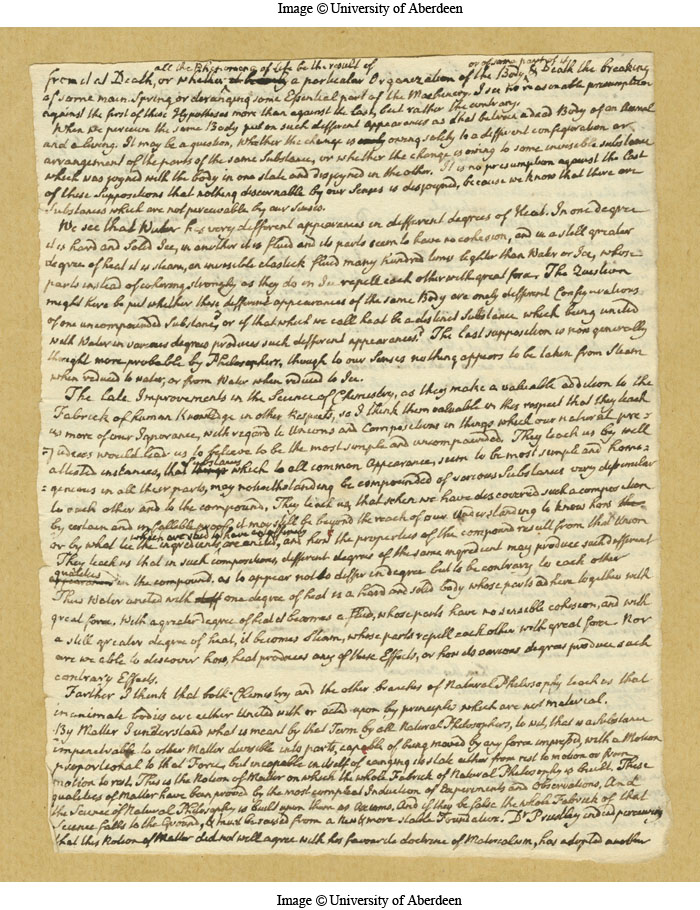 Image © University of Aberdeen
all the Phenomena of Life be the result of or of some part of it
from it at Death, or whether a particular Organization of the Body, & Death the breaking
of some main Spring or deranging some Essential part of the Machinery. I see no reasonable presumption
against the first of these Hypotheses more than against the last, but rather the contrary.
When we perceive the same Body put on such different Appearances as that between a dead Body of an Animal
and a living. It may be a question, whether the change is owing solely to a different configuration or
arrangement of the parts of the same Substance, or whether the change is owing to some invisible substance
which was joyned with the body in one state and disjoyned in the other. It is no presumption against the last
of these Suppositions that nothing discernable by our Senses is disjoyned, because we know that there are
Substances which are not perceivable by our Senses.
We see that Water has very different appearances in different degrees of Heat. In one degree
it is hard and Solid Ice, in another it is fluid and its parts seem to have no cohesion, and in a still greater
degree of heat it is steam, an invisible elastick fluid many hundred times lighter than Water or Ice, whose
parts instead of cohering strongly as they do in Ice repell each other with great force. The Question
might here be put whether these different appearances of the same Body are onely different Configurations
of one uncompounded Substance? or if that which we call heat be a distinct Substance which being united
with Water in various degrees produces such different appearances? The last supposition is now generally
thought more probable by Philosophers, though to our Senses nothing appears to be taken from Steam
when reduced to water, or from Water when reduced to Ice.
The Late Improvements in the Science of Chemestry, as they make a valuable addition to the
Fabrick of human Knowledge in other Respects, so I think them valuable in this respect that they teach
us more of our Ignorance, with regard to Unions and Compositions in things which our natural pre=
=judices would lead us to believe to be the most simple and uncompounded. They teach us by well
attested instances, that substances which to all common Appearance, seem to be most simple and homo=
=geneous in all their parts, may notwithstanding be compounded of various Substances very dissimilar
to each other and to the compound, They teach us, that when we have discovered such a composition
by certain and infallible proofs, it may still be beyond the reach of our Understanding to know how
which are said to have an affinity
or by what tie the ingredients, are united, and how the properties of the compound result from that Union
They teach us that in such compositions, different degrees of the same ingredient may produce such different
qualities in the compound, as to appear not to differ in degree but to be contrary to each other
Thus Water united with one degree of heat is a hard and solid body whose parts adhere together with
great force, With a greater degree of heat it becomes a Fluid, whose parts have no sensible cohesion, and with
a still greater degree of heat, it becomes Steam, whose parts repell each other with great force. Nor
are we able to discover how, heat produces any of these Effects, or how its various degrees produce such
contrary Effects.
Farther I think that both Chemestry and the other branches of Natural Philosophy teach us that
inanimate bodies are either United with or acted upon by principles which are not material.
By Matter I understand what is meant by that Term by all Natural Philosophers, to wit, that is a Substance
impenetrable to other Matter divisible into parts, capable of being moved by any force impressed, with a Motion
proportional to that Force, but incapable in itself of changing its state either from rest to motion or from
motion to rest. This is the Notion of Matter on which the whole Fabrick of Natural Philosophy is built. These
qualities of Matter have been proved by the most compleat Induction of Experiments and Observations, And
the Science of Natural Philosophy is built upon them as Axioms, And if they be false the whole Fabrick of that
Science falls to the Ground, & must be raised from a new & more stable Foundation. Dr Priestley indeed perceiving
that this Notion of Matter did not well agree with his favourite doctrine of Materialism, has adopted another
Image © University of Aberdeen